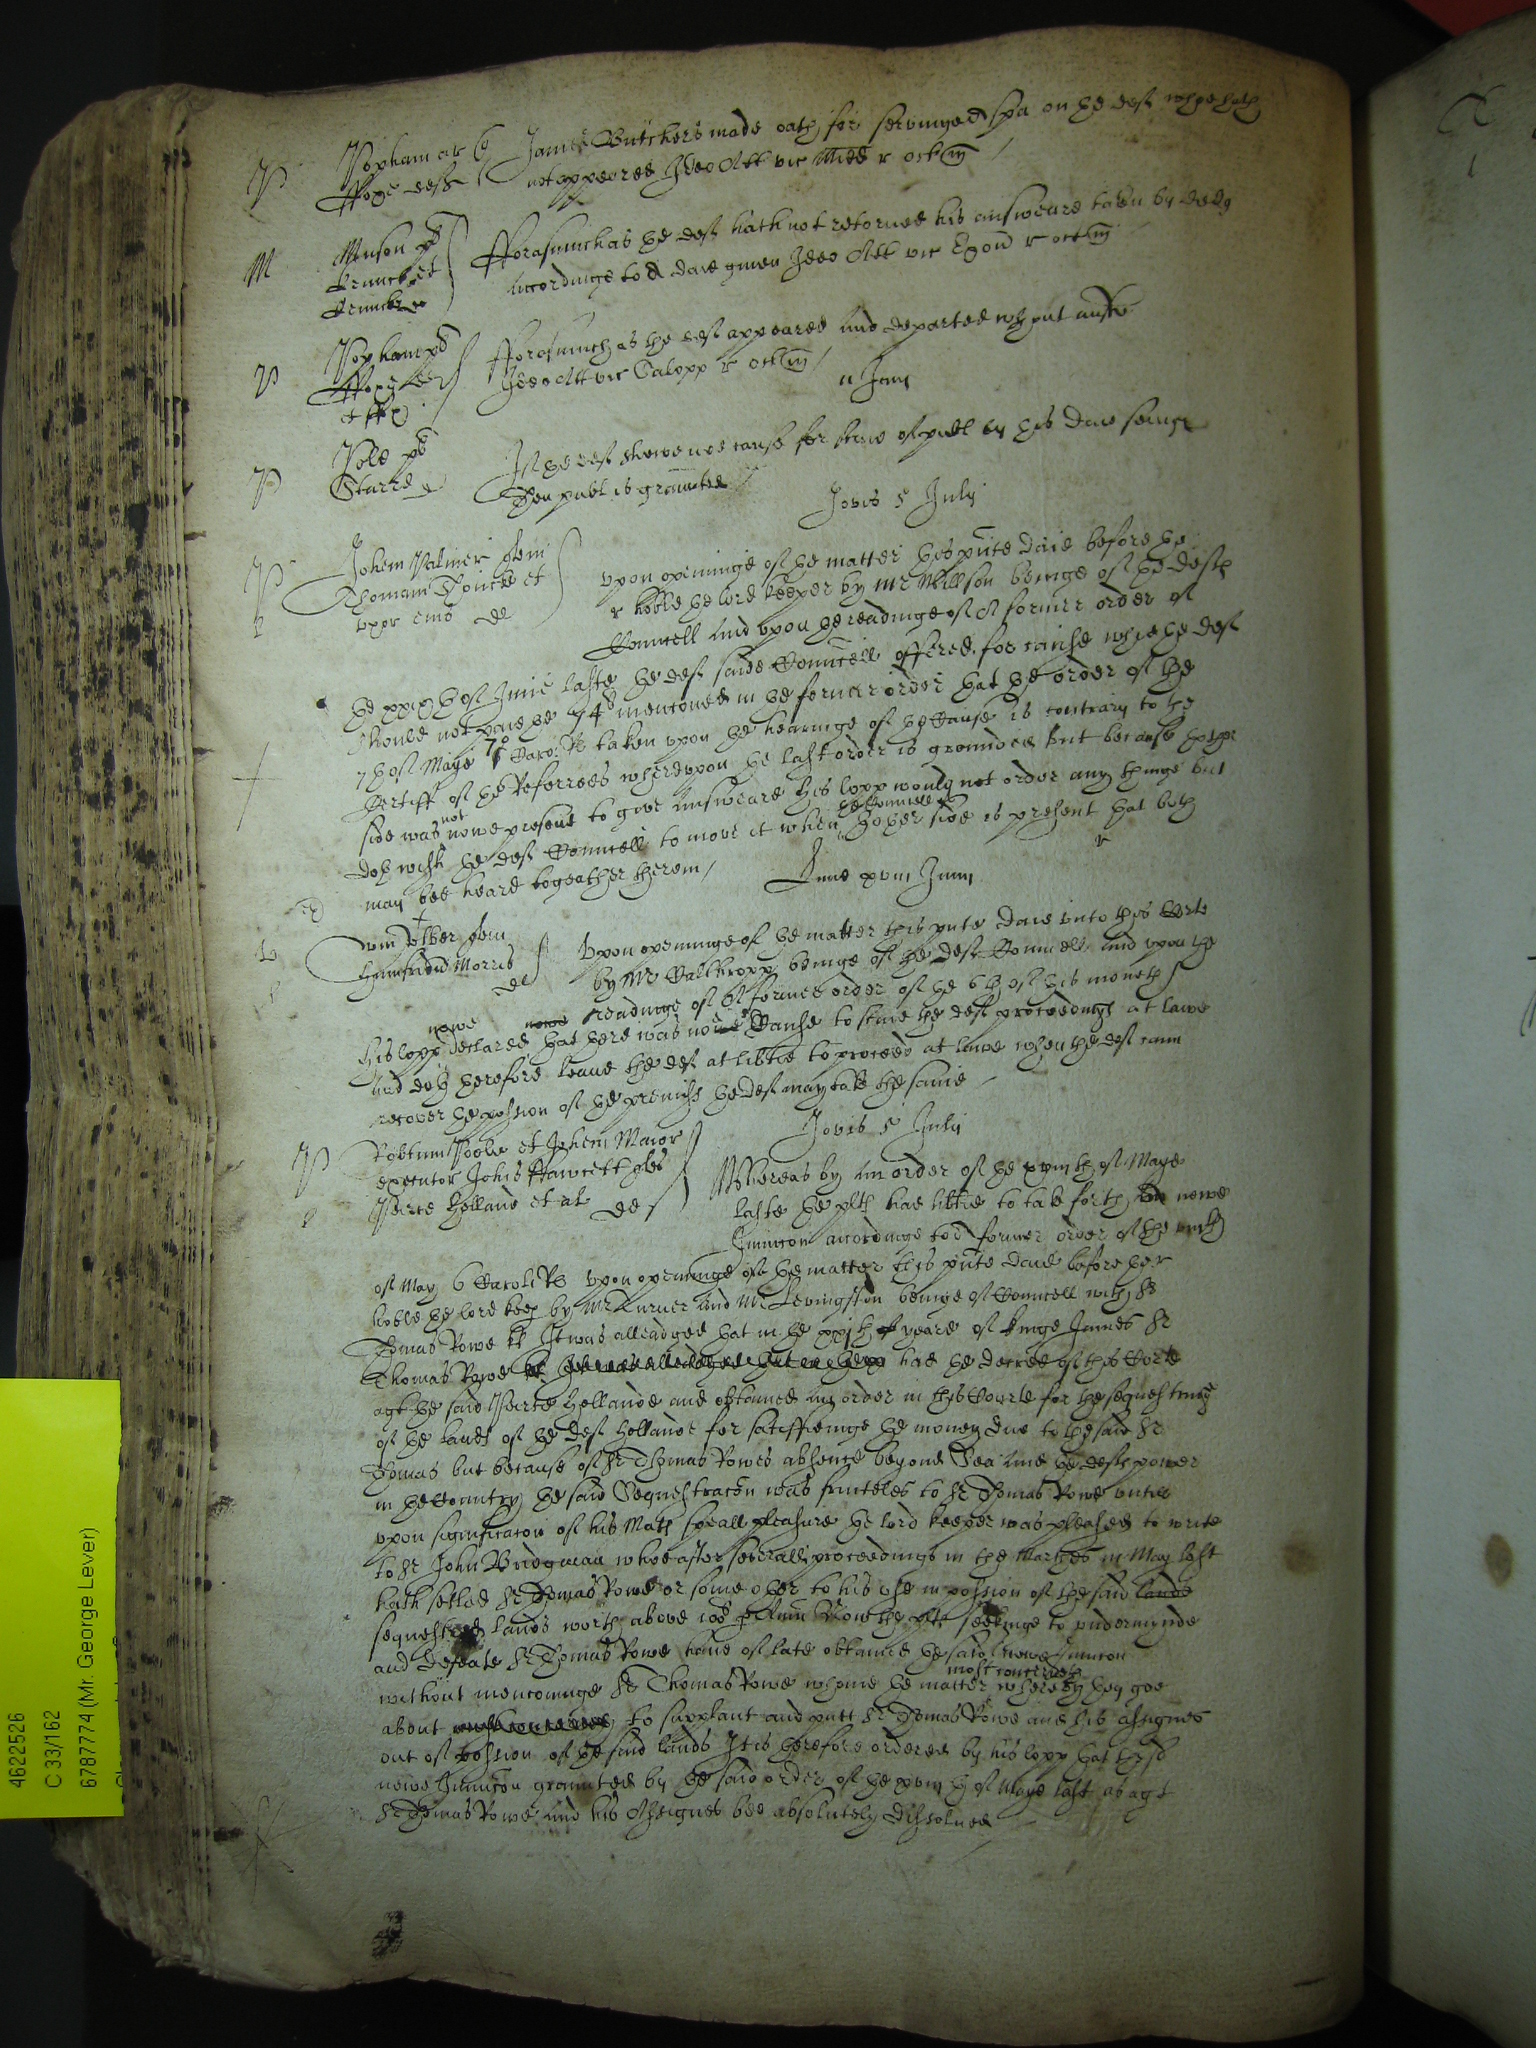 P Popham ar q James Butchers made oath for servinge d spa on the deft whoe hath
deft not appeared Ideo Att vic Midd r oct m
M Monson q
Forasmuch as the deft hath not retorned his answeare taken by dedg
accordinge to a daie given Ideo Att vic r oct m
P Popham q Forasmuch as the deft appeared and departed wthout answ
Ideo Att vic Salopp r oct m
11 Junij
P Pole q If the deft shewe noe cause for staie of publ by this daie
Starre d then publ is graunted
Jovis 5 Julij
P Johem Palmer quer
Thomam et
uxor eius de
Upon openinge of the matter this pnte daie before the
r hoble the lord keeper by Mr Willson beinge of the defts
Councell and upon the readinge of a former order of
the of June laste the defts saide Councell offered for cause whie the deft
should not paie the 74 mencioned in the former order that the order of the
7th of Maye 7o Caro: R taken upon the hearinge of the Cause is contrary to the
Certiff of the Referrees whereupon the last order is grounded but because thother
side was not nowe present to give Answeare his lopp would not order any thinge but
doth wish the deft Councell to move it when the Councell of thother side is present that both
may bee heard togeather therein
Lune xviii Junij
L quer
Morris
de
Upon openinge of the matter this pnte daie unto this Corte
by Mr Calthropp beinge of the deft Councell and upon the
readinge of a former order of the 6th of this moneth
his lopp nowe declared that there was noe Cause to staie the deft proceedings at lawe
And doth therefore leave the deft at libtie to proceed at lawe when the deft cann
recover the possion of the premisses the deft may take the same
Jovis 5 Julij
P Robtum Poole et Johem Maior
executor Johis Fawcett ples
Peirce Holland et al de
Whereas by an order of the xviiith of Maye
laste the plts had libtie to take forth an newe
Iniuncon accordinge to a former order of the
of May 6 Caroli R Upon openinge of the matter this pnte daie before the r
hoble the lord keep by Mr Turner and Mr Levingston beinge of Councell with Sr
Thomas Rowe kt It was alleadged that in the xxjth yeare of kinge James Sr
Thomas Rowe had the decree of this Corte
agt the said Peirce Hollande and obtained an order in this Courte for the sequestringe
of the lands of the deft Hollande for satisffieinge the money due to the said Sr
Thomas but because of Sr Thomas Rowes absence beyond Sea and the defts power
in the Country the said Sequestracon was fruteles to Sr Thomas Rowe untill
upon significacon of his Mats speall pleasure the lord keeper was pleased to write
to Sr John Bridgman whoe after severall proceedings in the Marches in May last
hath setled Sr Thomas Rowe or some other to his use in possion of the said lands
sequestred lands worth above p Annu Now the plts seekinge to undermynde
and defeate Sr Thomas Rowe have of late obtained the said newe Iniuncon
without mencioninge Sr Thomas Rowe whome the matter most concerneth whereby they goe
about to supplant and putt Sr Thomas Rowe and his assignes
out of possion of the said lands It is therefore ordered by his lopp that the sd
newe Iniuncon graunted by the said order of the xviiith of Maye last as agt
Sr Thomas Rowe and his Assignes bee absolutely dissolved
4622526
C 33/162
6787774 (Mr. George Lever)